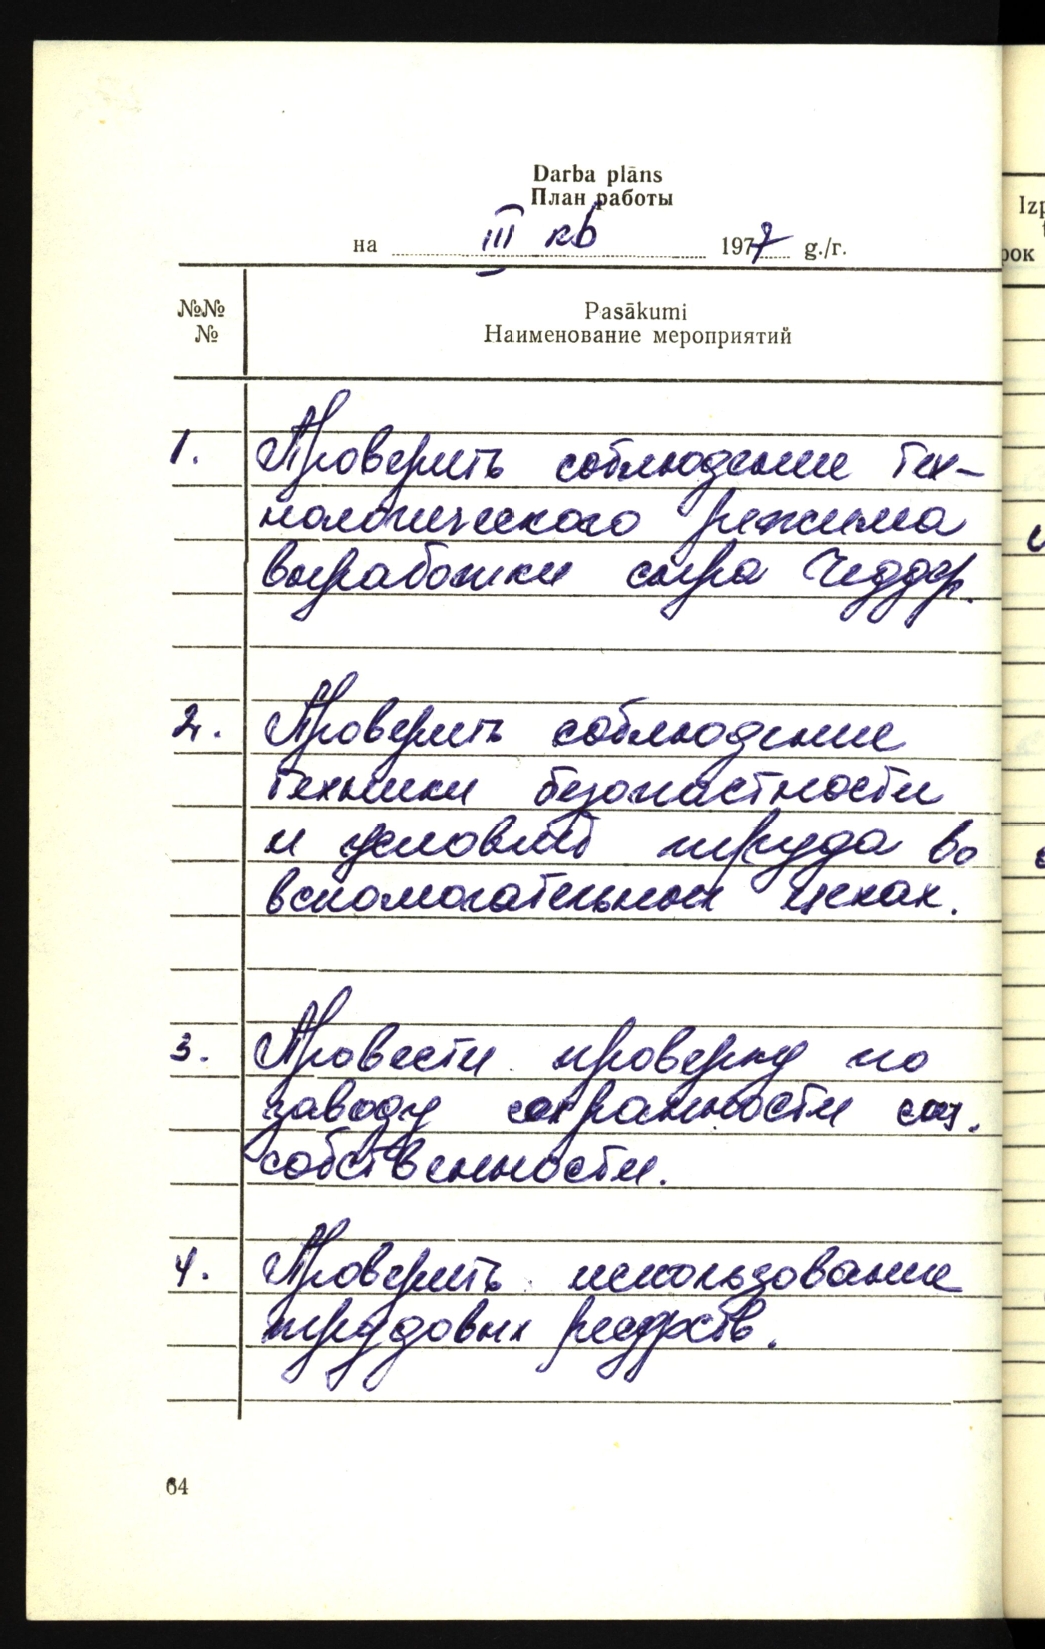 Darba plāns
План работы
на III кв 1977 g./г.
Izp
рок
№№
№
Pasākumi
Наименование мероприятий
1. Проверить соблюдение тех-
нологического режима
выработки сыра Чеддер.
2. Проверить соблюдение
техники безопастности
и условий труда во
вспомогательных цехах.
3. Провести проверку по
заводу сохранности соц.
собственности.
4. Проверить использование
трудовых ресурсов.
64